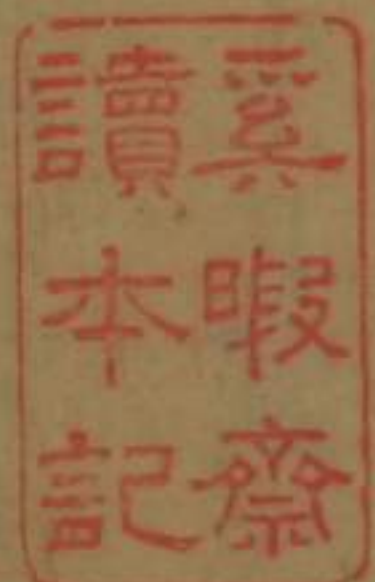 奚暇齋
讀本記